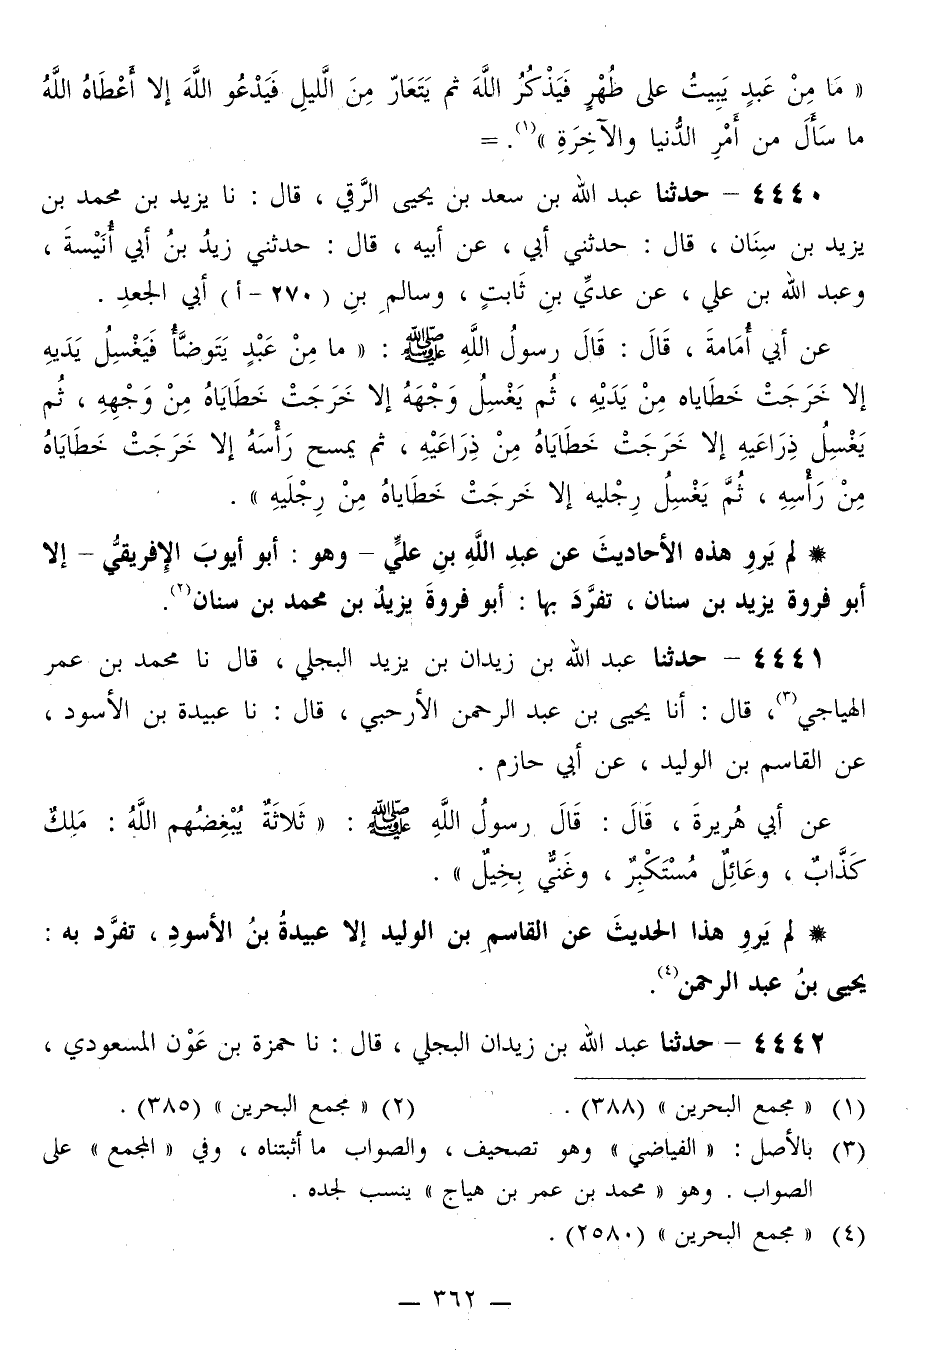 « مَا مِنْ عَبدٍ يَبِيتُ على طُهْرٍ فَيَذْكُرُ اللَّهَ ثم يَتَعَارّ مِنَ الَّليلِ فَيَدْعُو اللَّهَ إلا أَعْطَاهُ اللَّهُ
ما سَأَلَ من أَمْرِ الدُّنيا والآخِرَةِ »(١). =
٤٤٤٠ – حدثنا عبد الله بن سعد بن يحيى الرَّقي ، قال : نا يزيد بن محمد بن
يزيد بن سِنَان ، قال : حدثني أبي ، عن أبيه ، قال : حدثني زيدُ بنُ أبي أُنَيْسةَ ،
وعبد الله بن علي ، عن عديِّ بنِ ثَابتٍ ، وسالمِ بنِ (٢٧٠ - أ) أبي الجعدِ .
عن أبي أُمَامةَ ، قَالَ : قَالَ رسولُ اللَّهِ ﷺ : « ما مِنْ عَبْدٍ يَتَوضَّأُ فَيَغْسِلُ يَدَيهِ
إلا خَرَجَتْ خَطَاياه مِنْ يَدَيْهِ ، ثُم يَغْسلُ وَجْهَهُ إلا خَرَجَتْ خَطَايَاهُ مِنْ وَجْهِهِ ، ثُم
يَغْسلُ ذِرَاعَيهِ إلا خَرَجَتْ خَطَايَاهُ مِنْ ذِرَاعَيْهِ ، ثم يمسح رَأْسَهُ إلا خَرَجَتْ خَطَايَاهُ
مِنْ رَأْسِهِ ، ثُمَّ يَغْسِلُ رِجْليه إلا خَرجَتْ خَطَاياهُ مِنْ رِجْلَيهِ » .
* لم يَروِ هذه الأحاديثَ عن عبدِ اللَّهِ بنِ عليٍّ – وهو : أبو أيوبَ الإفريقيُّ – إلا
أبو فروة يزيد بن سنان ، تفرَّدَ بها : أبو فروةَ يزيدُ بن محمد بن سنان(٢).
٤٤٤١ – حدثنا عبد الله بن زيدان بن يزيد البجلي ، قال نا محمد بن عمر
الهياجي(٣)، قال : أنا يحيى بن عبد الرحمن الأرحبي ، قال : نا عبيدة بن الأسود ،
عن القاسم بن الوليد ، عن أبي حازم .
عن أبي هُريرةَ ، قَالَ : قَالَ رسولُ اللَّهِ ﷺ : « ثَلاثَةٌ يُبْغِضُهم اللَّهُ : مَلِكٌ
كَذَّابٌ ، وعَائِلٌ مُسْتَكْبِرٌ ، وغَنيٌّ بِخِيلٌ » .
* لم يَروِ هذا الحديثَ عن القاسمِ بن الوليد إلا عبيدةُ بنُ الأسودِ ، تفرَّد به :
يحيى بنُ عبد الرحمن(٤).
٤٤٤٢ – حدثنا عبد الله بن زيدان البجلي ، قال : نا حمزة بن عَوْن المسعودي ،
(١) « مجمع البحرين » (٣٨٨) . (٢) « مجمع البحرين » (٣٨٥) .
(٣) بالأصل : « الفياضي » وهو تصحيف ، والصواب ما أثبتناه ، وفي « المجمع » على
الصواب . وهو « محمد بن عمر بن هياج » ينسب لجده .
(٤) « مجمع البحرين » (٢٥٨٠) .
— ٣٦٢ —